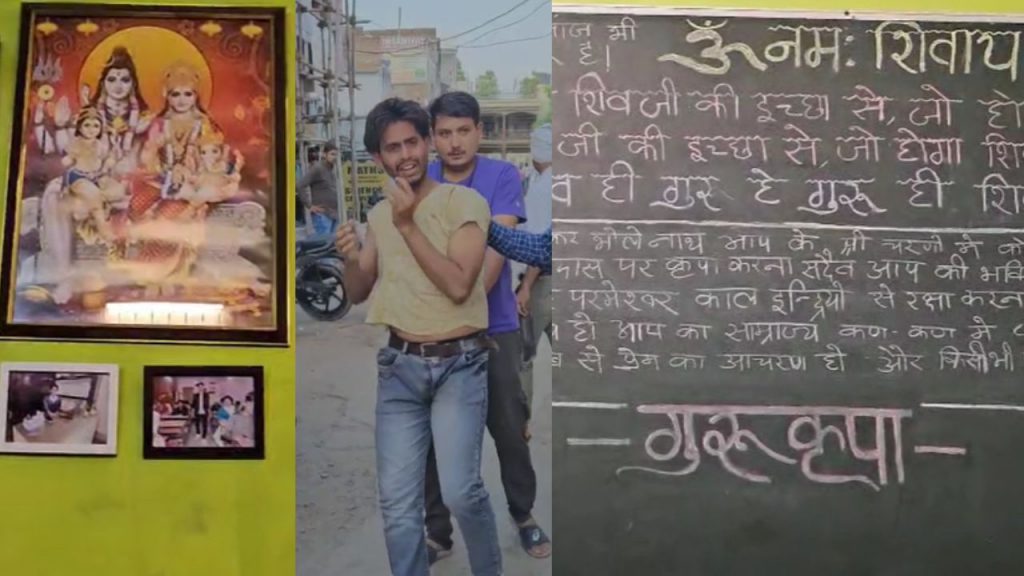 MATHS
भी
है।
ॐ नमः शिवाय
शिव जी की इच्छा से, जो
जी की इच्छा से, जो होगा
ही गुरू है गुरू ही
भोलेनाथ आप के श्री चरणों में
पर कृपा करना सदैव आप की
परमेश्वर काल इन्द्रियों से रक्षा करना
हो आप का साम्राज्य कण-कण में
से का आचरण हो और किसी भी
गुरू कृपा